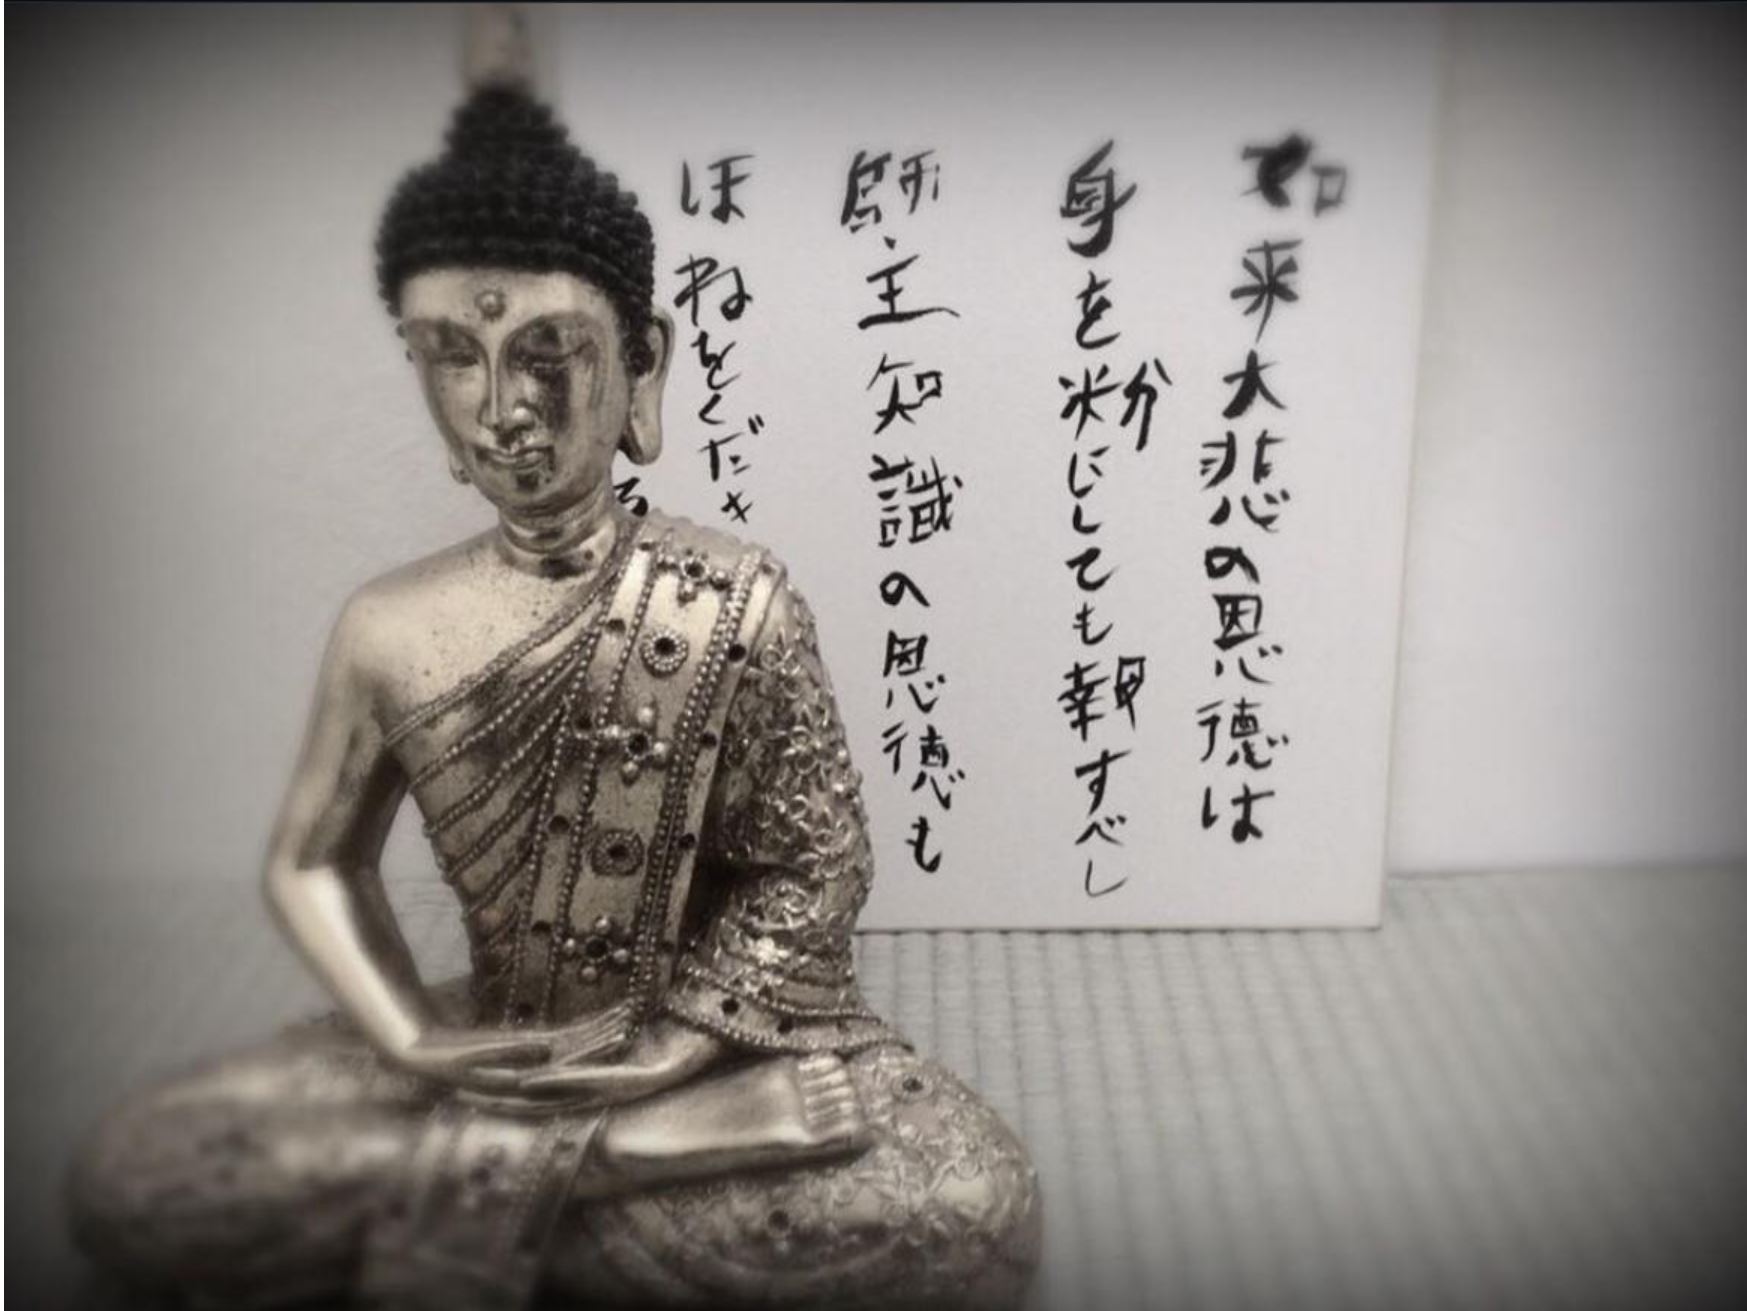 如来大悲の恩徳は
身を粉にしても報すべし
師主知識の恩徳も
ほねをくだき
る